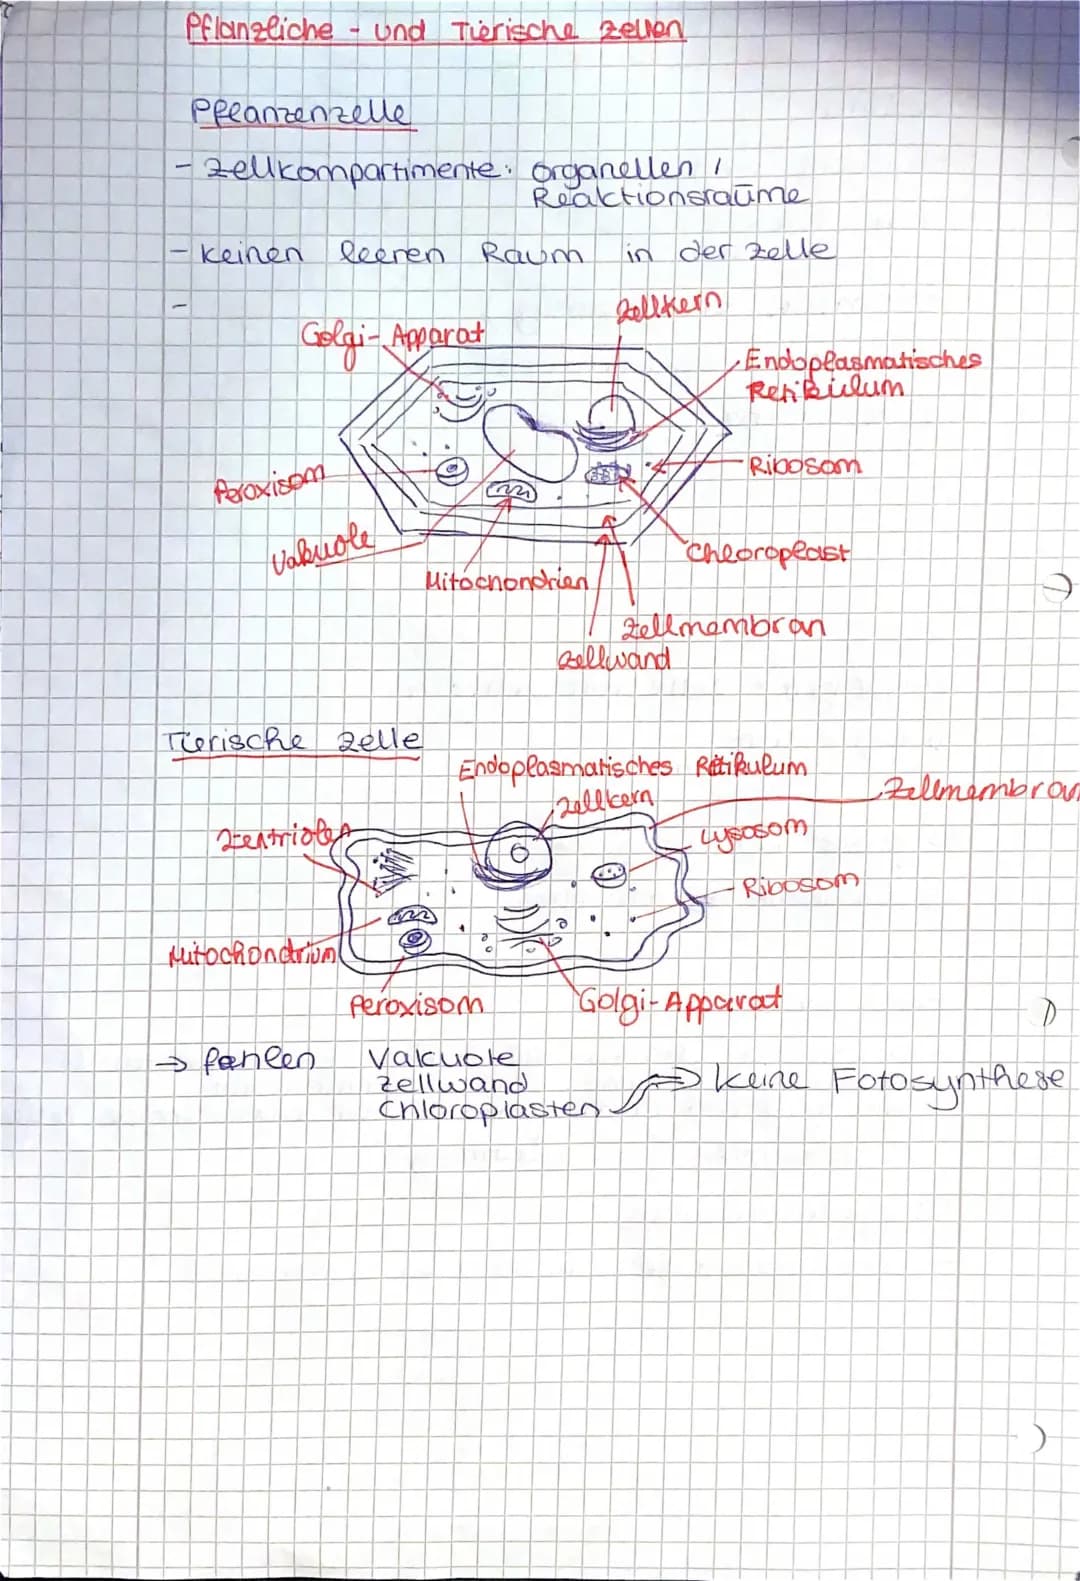 Pflanzliche - und Tierische Zellen
Pflanzenzelle
- Zellkompartimente: Organellen /
Reaktionsräume
- keinen leeren Raum in der Zelle
-
Zellkern
Golgi-Apparat
Endoplasmatisches
Retikulum
Ribosom
Peroxisom
Vakuole
Chloroplast
Mitochondrien
Zellmembran
Zellwand
Tierische Zelle
Endoplasmatisches Retikulum
Zellmembran
Zellkern
Zentriolen
Lysosom
Ribosom
Mitochondrium
Peroxisom
Golgi-Apparat
→ fehlen Vakuole
Zellwand
Chloroplasten ⇒ keine Fotosynthese